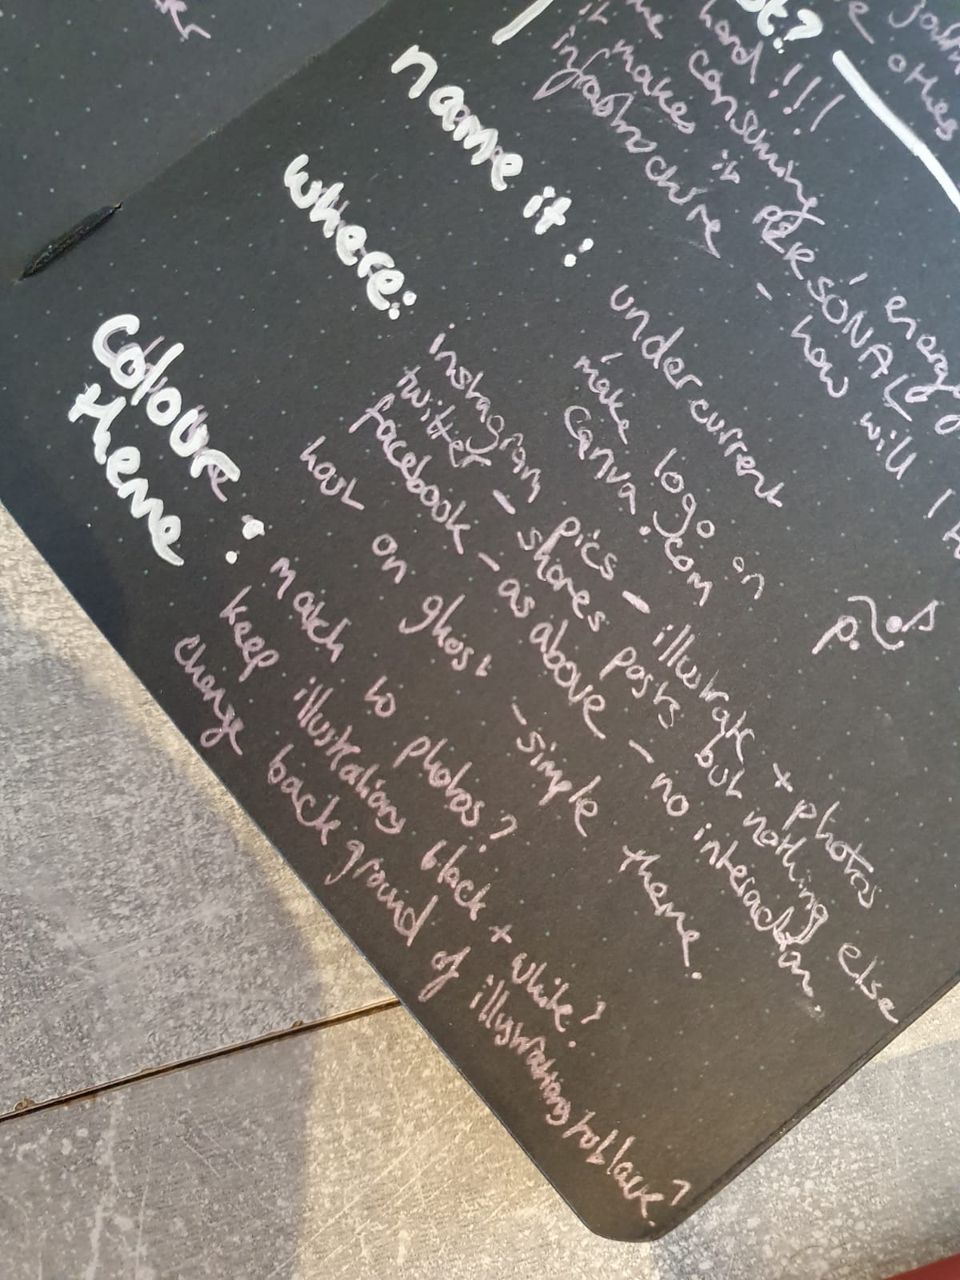 hard!!!
consuming energy
it makes it PERSONAL
how will I
name it:
undercurrent
make logo on
canva.com
where:
instagram pics - illustrate + photos
twitter - shares posts but nothing else
facebook - as above - no interaction.
host on ghost - simple theme.
colour theme:
match to photos?
keep illustrations black + white?
change background of illustrations